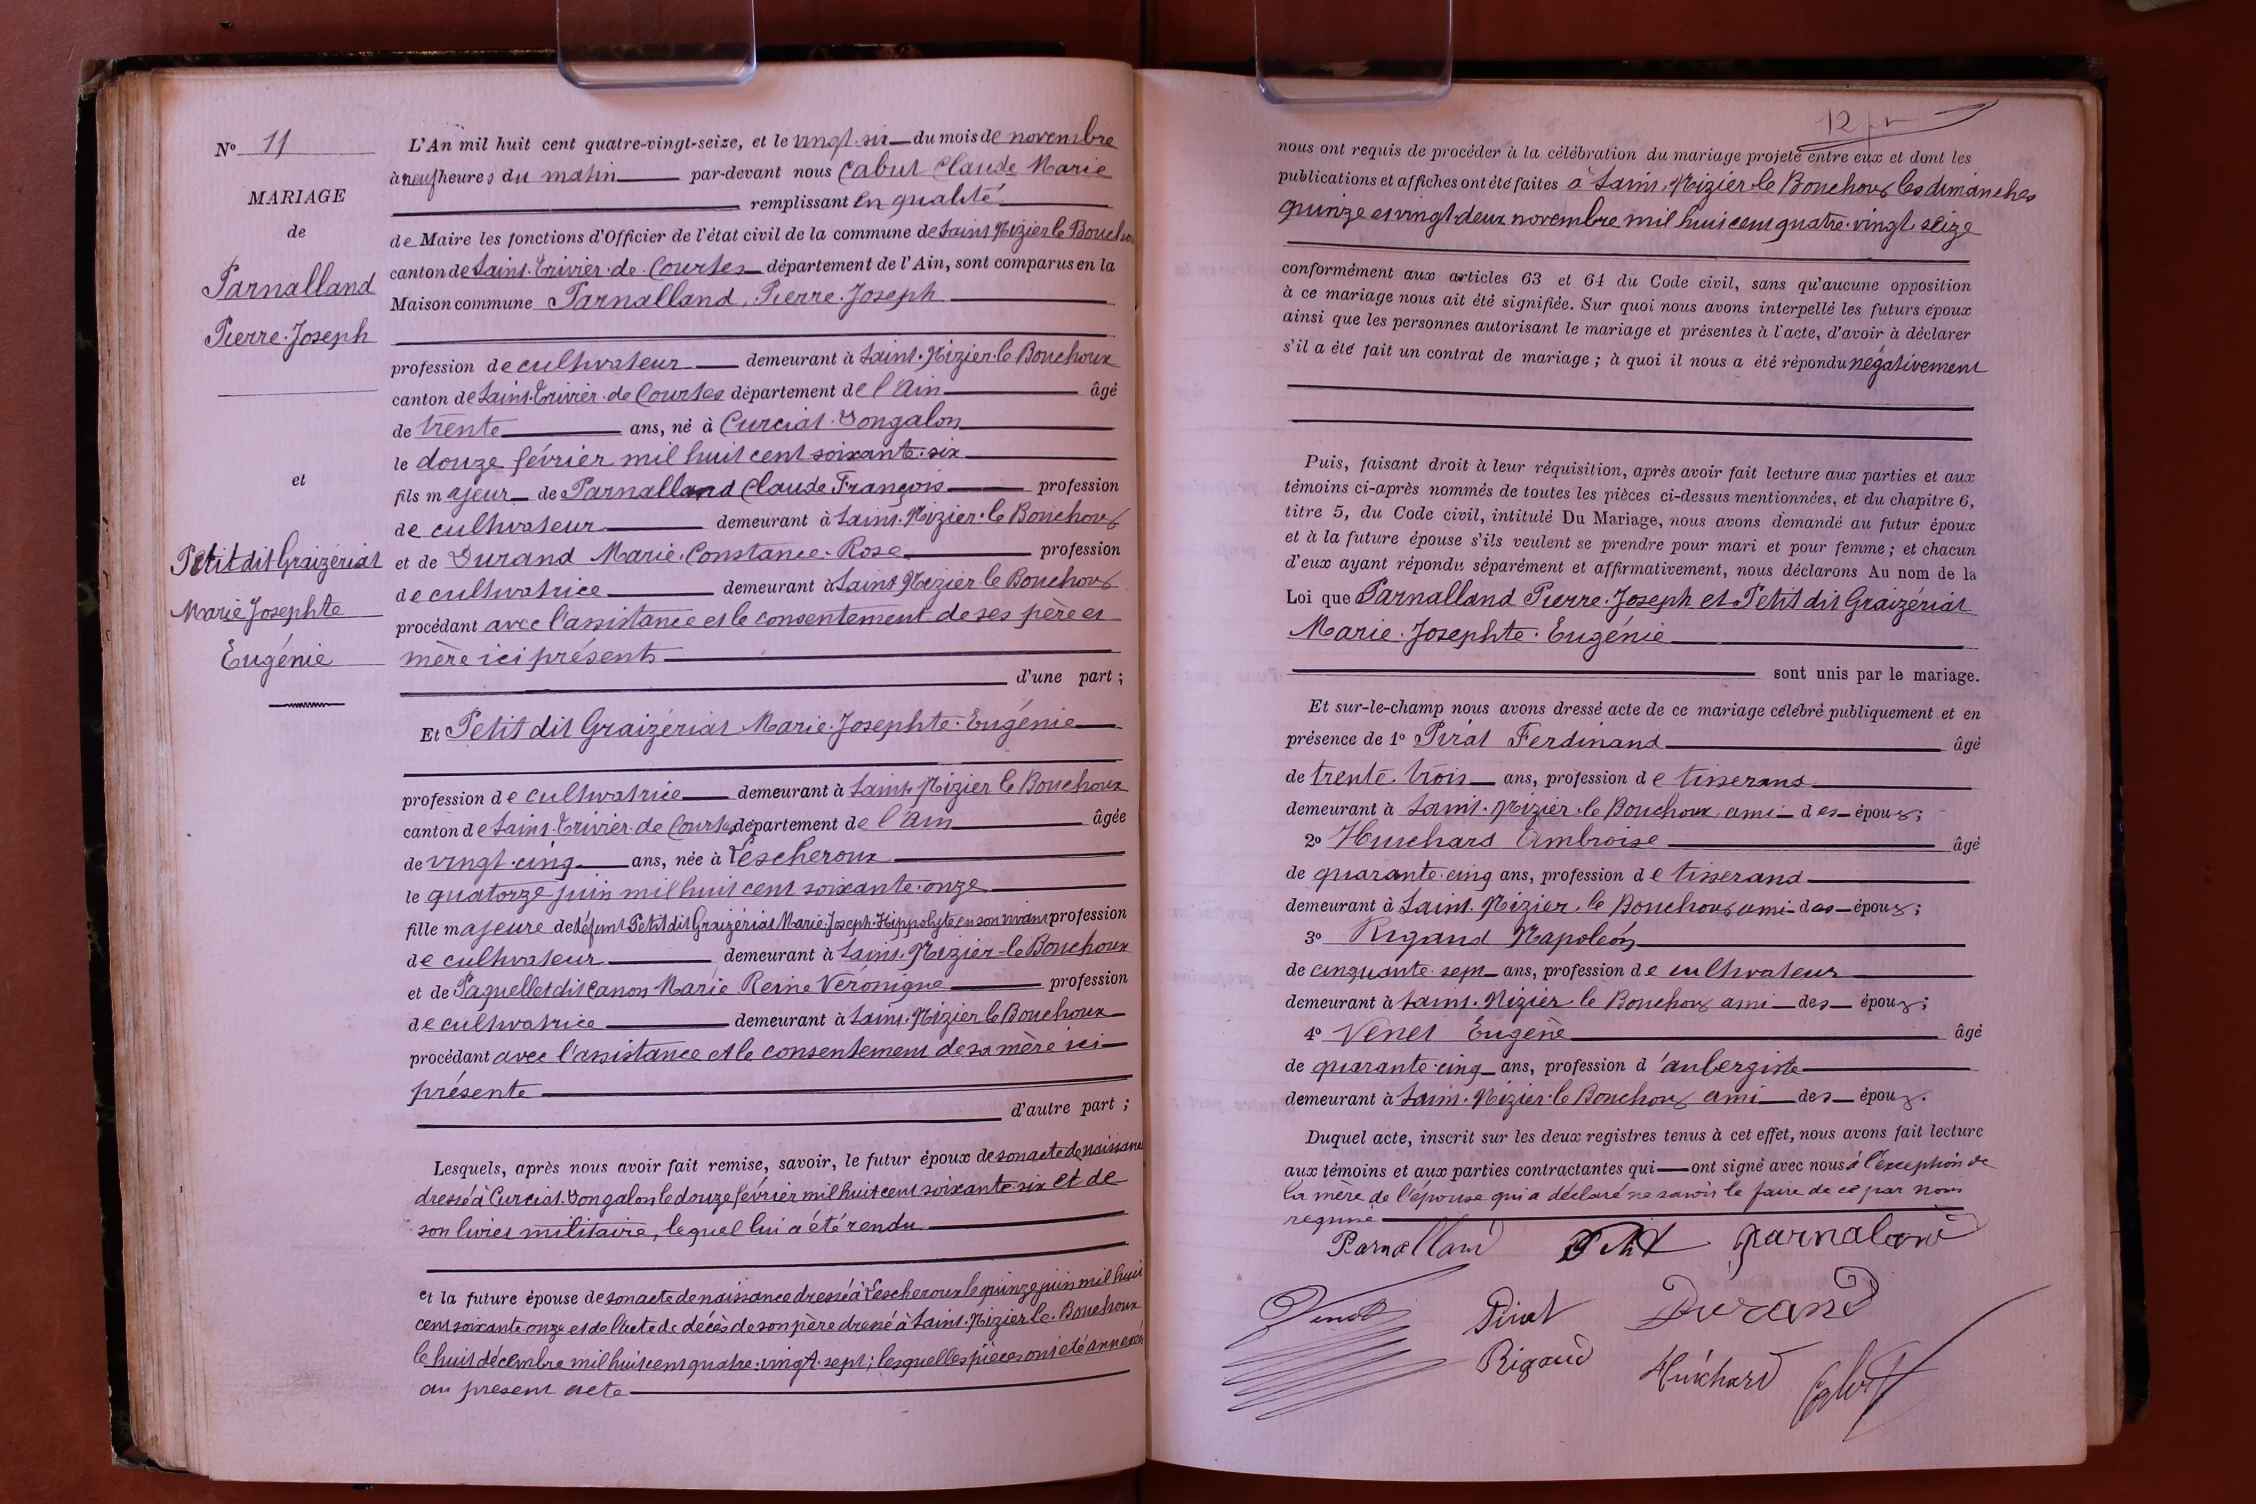 N° 11
MARIAGE
de
Parnalland
Pierre-Joseph
et
Petit dit Graizériat
Marie Josephte
Eugénie
L'An mil huit cent quatre-vingt-seize, et le vingt-six du mois de novembre
à neuf heures du matin par-devant nous Cabut Claude Marie
remplissant en qualité
de Maire les fonctions d'Officier de l'état civil de la commune de Saint Nizier le Bouchoux
canton de Saint-Trivier-de-Courtes département de l'Ain, sont comparus en la
Maison commune Parnalland, Pierre-Joseph
profession de cultivateur demeurant à Saint-Nizier-le Bouchoux
canton de Saint-Trivier-de Courtes département de l'Ain âgé
de trente ans, né à Curciat-Dongalon
le douze février mil huit cent soixante-six
fils majeur de Parnalland Claude François profession
de cultivateur demeurant à Saint-Nizier-le Bouchoux
et de Durand Marie-Constance-Rose profession
de cultivatrice demeurant à Saint Nizier le Bouchoux
procédant avec l'assistance et le consentement de ses père et
mère ici présents
d'une part ;
Et Petit dit Graizériat Marie-Josephte-Eugénie
profession de cultivatrice demeurant à Saint Nizier le Bouchoux
canton de Saint-Trivier-de Courtes département de l'Ain âgée
de vingt-cinq ans, née à Lescheroux
le quatorze juin mil huit cent soixante-onze
fille majeure de défunt Petit dit Graizériat Marie-Joseph-Hippolyte en son vivant profession
de cultivateur demeurant à Saint-Nizier-le Bouchoux
et de Paquellet dit Canon Marie Reine Véronique profession
de cultivatrice demeurant à Saint-Nizier le Bouchoux
procédant avec l'assistance et le consentement de sa mère ici
présente
d'autre part ;
Lesquels, après nous avoir fait remise, savoir, le futur époux de son acte de naissance
dressé à Curciat-Dongalon le douze février mil huit cent soixante six et de
son livret militaire, lequel lui a été rendu
et la future épouse de son acte de naissance dressé à Lescheroux le quinze juin mil huit
cent soixante onze et de l'acte de décès de son père dressé à Saint-Nizier-le-Bouchoux
le huit décembre mil huit cent quatre-vingt-sept ; lesquelles pièces ont été annexées
au présent acte
12
nous ont requis de procéder à la célébration du mariage projeté entre eux et dont les
publications et affiches ont été faites à Saint-Nizier-le Bouchoux les dimanches
quinze et vingt-deux novembre mil huit cent quatre-vingt-seize
conformément aux articles 63 et 64 du Code civil, sans qu'aucune opposition
à ce mariage nous ait été signifiée. Sur quoi nous avons interpellé les futurs époux
ainsi que les personnes autorisant le mariage et présentes à l'acte, d'avoir à déclarer
s'il a été fait un contrat de mariage ; à quoi il nous a été répondu négativement
Puis, faisant droit à leur réquisition, après avoir fait lecture aux parties et aux
témoins ci-après nommés de toutes les pièces ci-dessus mentionnées, et du chapitre 6,
titre 5, du Code civil, intitulé Du Mariage, nous avons demandé au futur époux
et à la future épouse s'ils veulent se prendre pour mari et pour femme ; et chacun
d'eux ayant répondu séparément et affirmativement, nous déclarons Au nom de la
Loi que Parnalland Pierre-Joseph et Petit dit Graizériat
Marie-Josephte-Eugénie
sont unis par le mariage.
Et sur-le-champ nous avons dressé acte de ce mariage célébré publiquement et en
présence de 1° Pirat Ferdinand âgé
de trente-trois ans, profession de tisserand
demeurant à Saint-Nizier-le Bouchoux ami des époux ;
2° Huchard Ambroise âgé
de quarante-cinq ans, profession de tisserand
demeurant à Saint-Nizier-le Bouchoux ami des époux ;
3° Rigaud Napoléon
de cinquante-sept ans, profession de cultivateur
demeurant à Saint-Nizier le Bouchoux ami des époux ;
4° Venet Eugène âgé
de quarante-cinq ans, profession d'aubergiste
demeurant à Saint-Nizier-le Bouchoux ami des époux.
Duquel acte, inscrit sur les deux registres tenus à cet effet, nous avons fait lecture
aux témoins et aux parties contractantes qui ont signé avec nous à l'exception de
la mère de l'épouse qui a déclaré ne savoir le faire de ce par nous
requise
Parnalland Petit Parnaland
Venet Pirat Durand
Rigaud Huichard Cabut